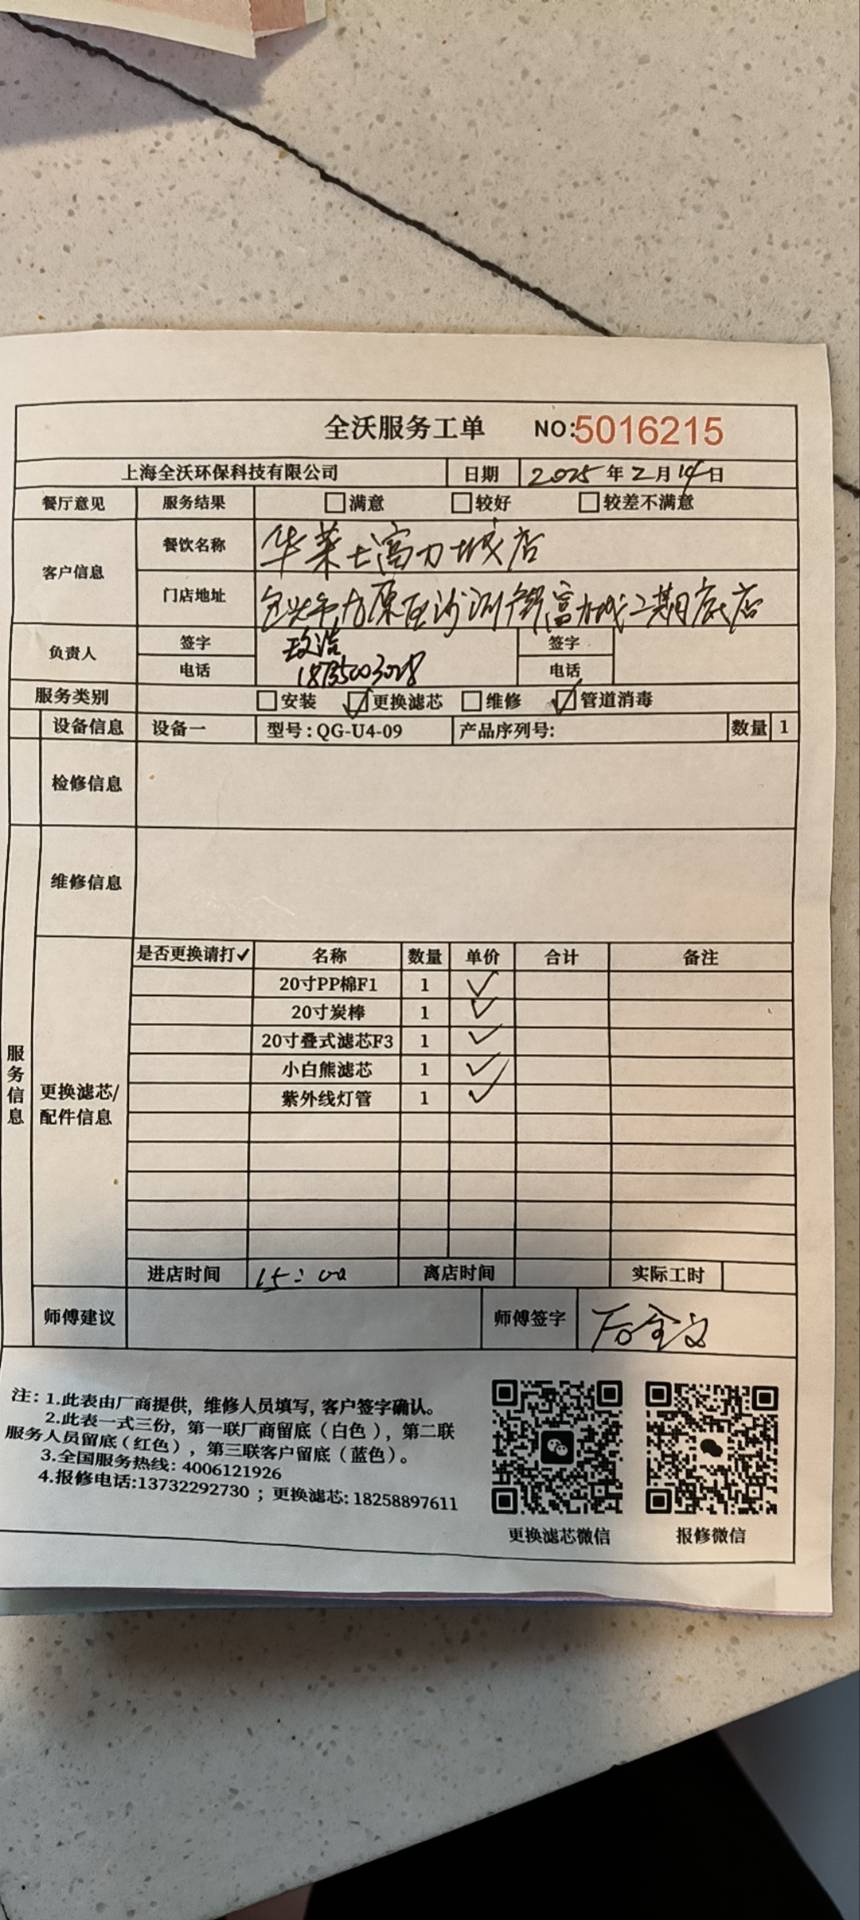 全沃服务工单 NO:5016215
上海全沃环保科技有限公司 日期 2025年2月14日
餐厅意见 服务结果 □满意 □较好 □较差不满意
客户信息 餐饮名称 华莱士富力城店
门店地址 包头市九原区沙河街富力城二期底店
负责人 签字 签字
电话 电话
服务类别 □安装 ☑更换滤芯 □维修 ☑管道消毒
设备信息 设备一 型号:QG-U4-09 产品序列号: 数量 1
检修信息
维修信息
服务信息
更换滤芯/配件信息
是否更换请打✓ 名称 数量 单价 合计 备注
20寸PP棉F1 1 ✓
20寸炭棒 1 ✓
20寸叠式滤芯F3 1 ✓
小白熊滤芯 1 ✓
紫外线灯管 1 ✓
进店时间 15:00 离店时间 实际工时
师傅建议 师傅签字
注: 1.此表由厂商提供, 维修人员填写, 客户签字确认。
2.此表一式三份, 第一联厂商留底(白色), 第二联
服务人员留底(红色), 第三联客户留底(蓝色)。
3.全国服务热线: 4006121926
4.报修电话:13732292730 ; 更换滤芯: 18258897611
更换滤芯微信 报修微信